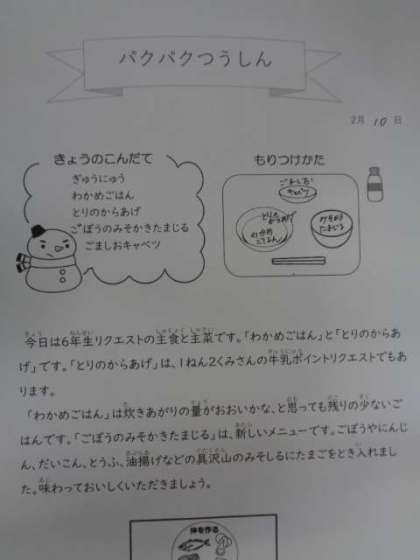 パクパクつうしん
2月 10 日
きょうのこんだて
ぎゅうにゅう
わかめごはん
とりのからあげ
ごぼうのみそかきたまじる
ごましおキャベツ
もりつけかた
ごましお
キャベツ
とりの
からあげ
わかめ
ごはん
たまじる
今日は6年生リクエストの主食と主菜です。「わかめごはん」と「とりのからあ
げ」です。「とりのからあげ」は、1ねん2くみさんの牛乳ポイントリクエストでもあ
ります。
「わかめごはん」は炊きあがりの量がおおいかな、と思っても残りの少ないご
はんです。「ごぼうのみそかきたまじる」は、新しいメニューです。ごぼうやにんじ
ん、だいこん、とうふ、油揚げなどの具沢山のみそしるにたまごをとき入れまし
た。味わっておいしくいただきましょう。
体を作る